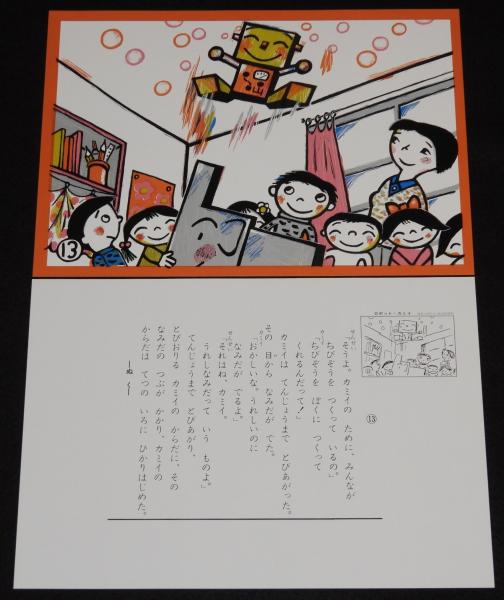 ⑬
ロボット・カミイ
⑬
せんせい
「そうよ。カミイの ために、みんなが
ちびぞうを つくって いるの」。
カミイ
「ちびぞうを ぼくに つくって
くれるんだって！」
カミイは てんじょうまで とびあがった。
その 目から なみだが でた。
カミイ
「おかしいな。うれしいのに
なみだが でるよ」。
せんせい
「それはね、カミイ。
うれしなみだって いう ものよ」。
てんじょうまで とびあがり、
とびおりる カミイの からだに、その
なみだの つぶが かかり、カミイの
からだは てつの いろに ひかりはじめた。
―ぬ く―